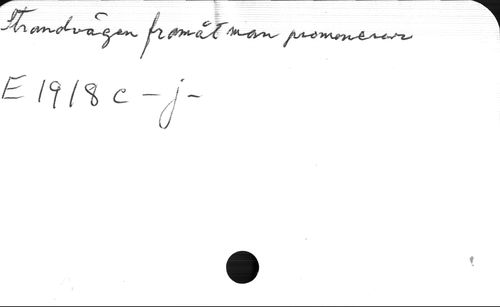 Strandvägen framåt man promenerar
E 1918 c - j -